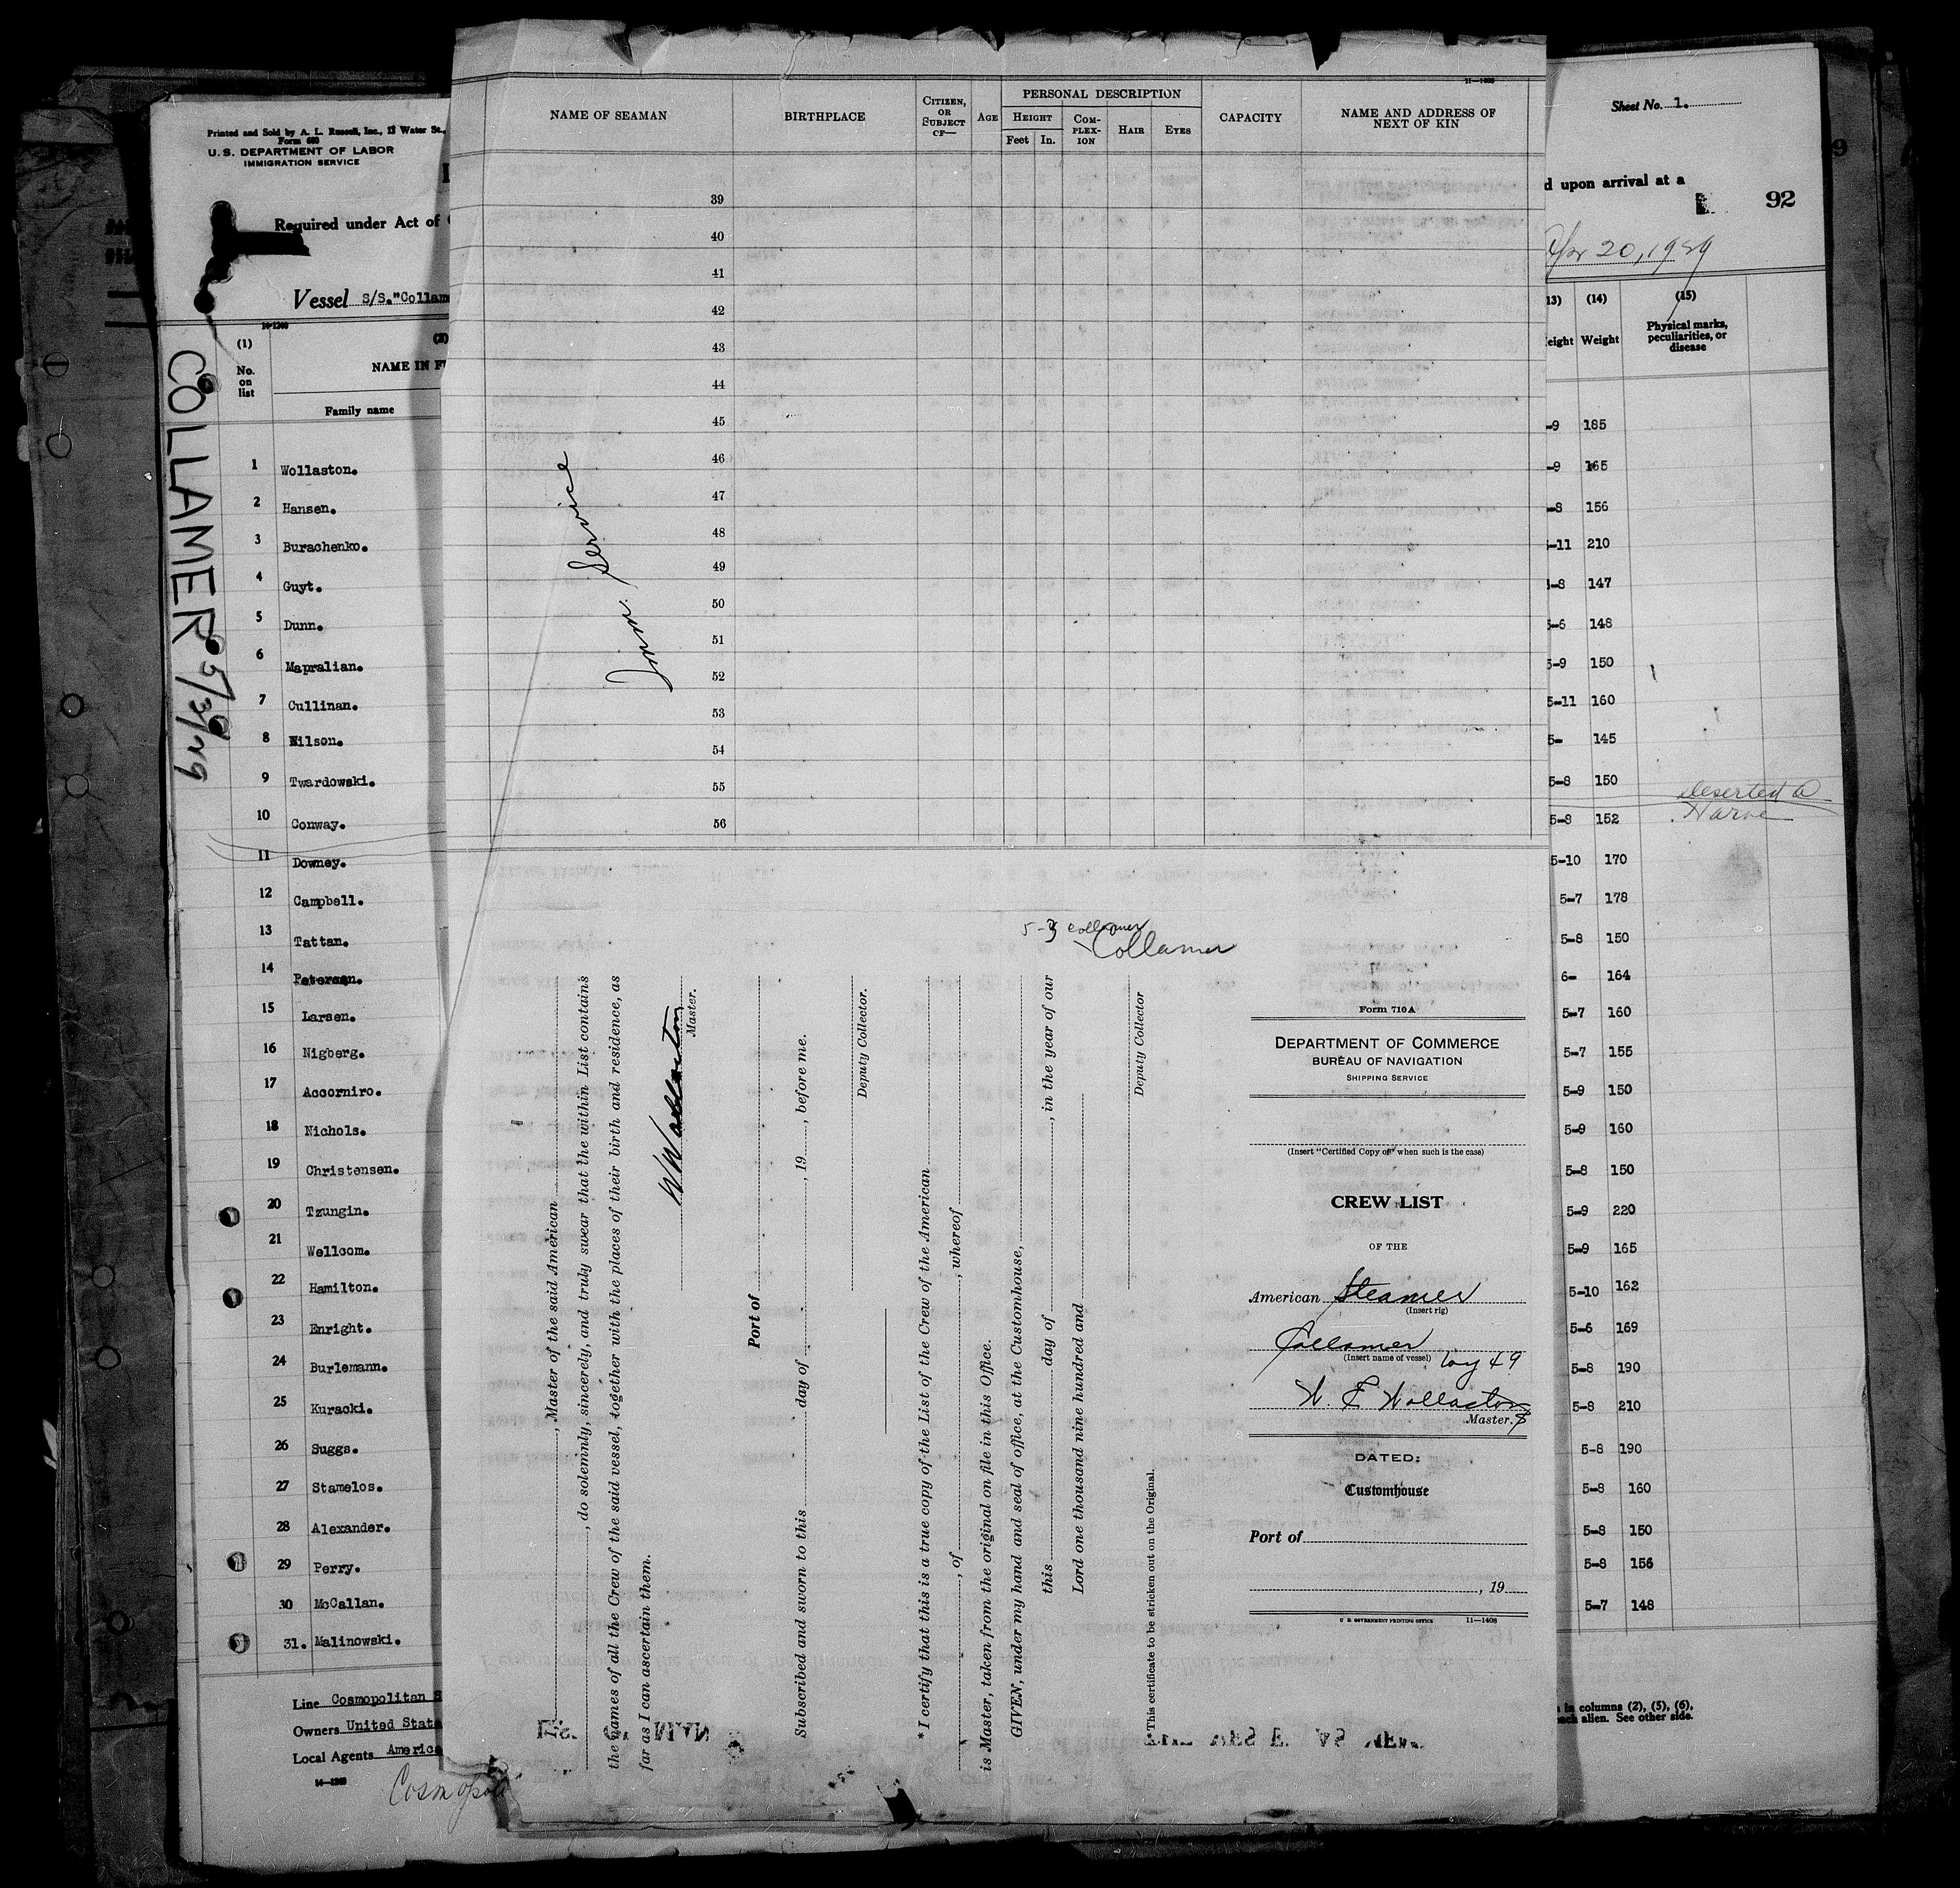 Printed and Sold by A. L. Russell, Inc., 13 Water St.,
Form 680
U. S. DEPARTMENT OF LABOR
IMMIGRATION SERVICE
Required under Act of
Vessel S/S. "Collam
14-1240
(1)
No.
on
list
(2)
NAME IN F
Family name
COLLAMER 5/3/29
1 Wollaston.
2 Hansen.
3 Burachenko.
4 Guyt.
5 Dunn.
6 Mapralian.
7 Cullinan.
8 Wilson.
9 Twardowski.
10 Conway.
11 Downey.
12 Campbell.
13 Tattan.
14 Petersen.
15 Larsen.
16 Nigberg.
17 Accorniro.
18 Nichols.
19 Christensen.
20 Tzungin.
21 Wellcom.
22 Hamilton.
23 Enright.
24 Burlemann.
25 Kuracki.
26 Suggs.
27 Stamelos.
28 Alexander.
29 Perry.
30 McCallan.
31. Malinowski.
Line Cosmopolitan S
Owners United Stat
Local Agents America
14-1240
Cosmopoli
11-1408
NAME OF SEAMAN
BIRTHPLACE
CITIZEN, OR SUBJECT OF—
AGE
PERSONAL DESCRIPTION
HEIGHT
Feet
In.
COM-PLEX-ION
HAIR
EYES
CAPACITY
NAME AND ADDRESS OF NEXT OF KIN
39
40
41
42
43
44
45
46
47
48
49
50
51
52
53
54
55
56
Imm. Service
5-3 Collamer
Collamer
, Master of the said American
, do solemnly, sincerely, and truly swear that the within List contains
the names of all the Crew of the said vessel, together with the places of their birth and residence, as
far as I can ascertain them.
W Wollaston
Master.
Port of
Subscribed and sworn to this day of , 19 , before me.
Deputy Collector.
* I certify that this is a true copy of the List of the Crew of the American
, of , whereof
is Master, taken from the original on file in this Office.
GIVEN, under my hand and seal of office, at the Customhouse,
this day of , in the year of our
Lord one thousand nine hundred and
Deputy Collector
* This certificate to be stricken out on the Original.
Form 710 A
DEPARTMENT OF COMMERCE
BUREAU OF NAVIGATION
SHIPPING SERVICE
(Insert "Certified Copy of" when such is the case)
CREW LIST
OF THE
American Steamer
(Insert rig)
Collamer
(Insert name of vessel) Voy 49
W. F. Wollaston
Master.
DATED:
Customhouse
Port of
, 19
U. S. GOVERNMENT PRINTING OFFICE 11—1408
Sheet No. 1.
d upon arrival at a
92
9
Apr 20, 1929
13)
eight
(14)
Weight
(15)
Physical marks, peculiarities, or disease
-9 185
-9 165
-8 156
-11 210
-8 147
5-6 148
5-9 150
5-11 160
5- 145
5-8 150
deserted a
Havre
5-8 152
5-10 170
5-7 178
5-8 150
6- 164
5-7 160
5-7 155
5-9 150
5-9 160
5-8 150
5-9 220
5-9 165
5-10 162
5-6 169
5-8 190
5-8 210
5-8 190
5-8 160
5-8 150
5-8 156
5-7 148
in columns (2), (5), (6),
ach alien. See other side.